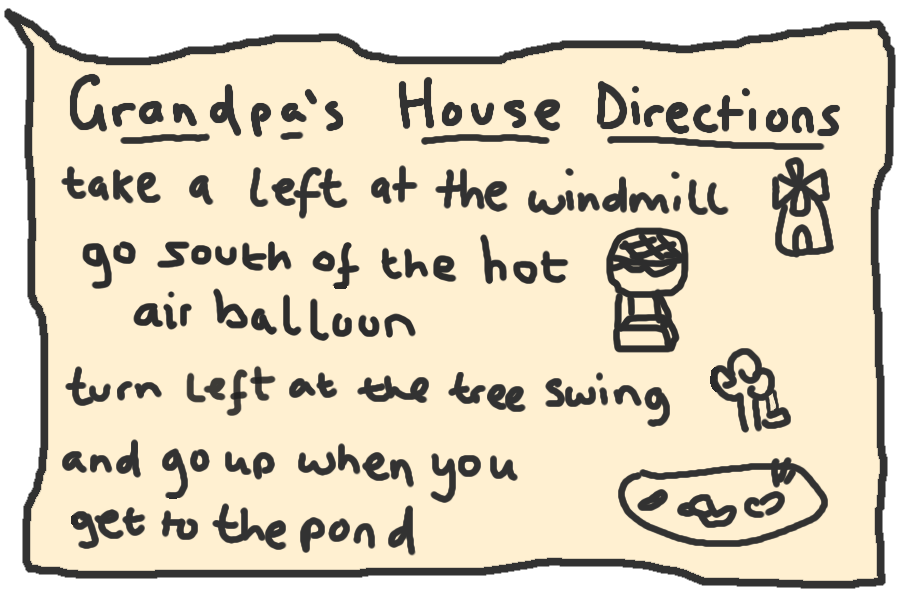 Grandpa's House Directions
take a left at the windmill
go south of the hot
air balloon
turn left at the tree swing
and go up when you
get to the pond